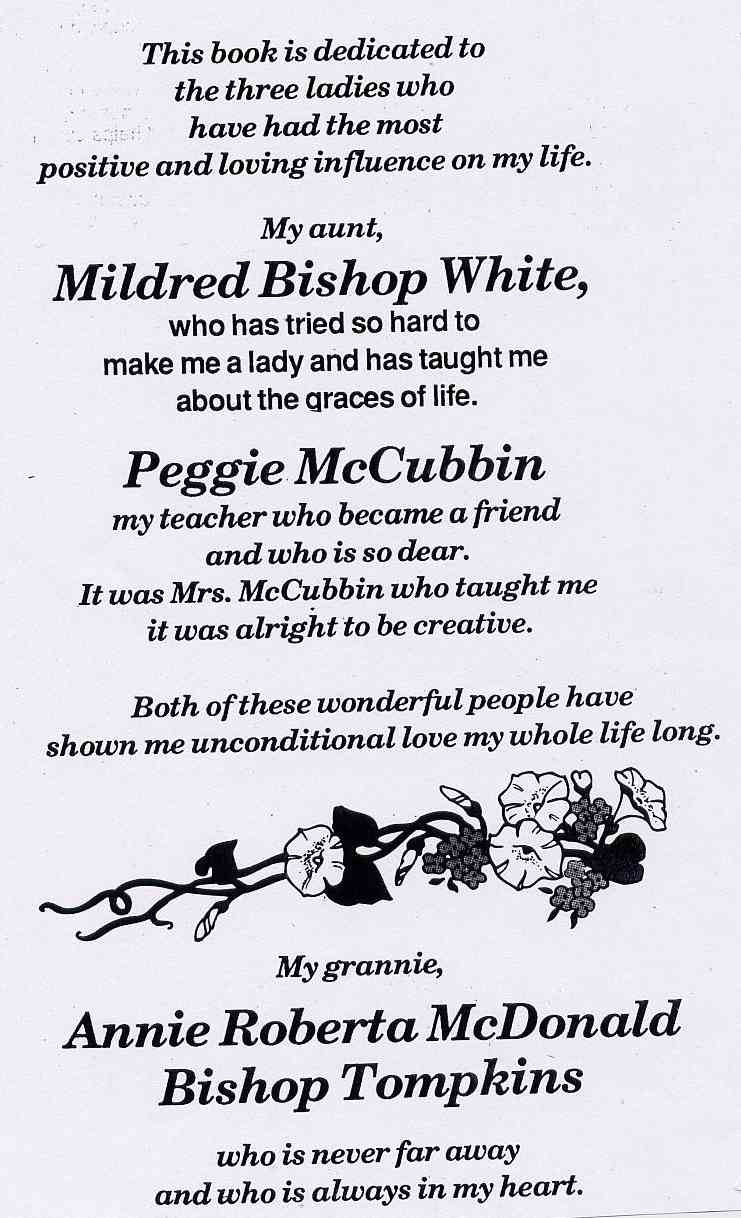 This book is dedicated to
the three ladies who
have had the most
positive and loving influence on my life.
My aunt,
Mildred Bishop White,
who has tried so hard to
make me a lady and has taught me
about the graces of life.
Peggie McCubbin
my teacher who became a friend
and who is so dear.
It was Mrs. McCubbin who taught me
it was alright to be creative.
Both of these wonderful people have
shown me unconditional love my whole life long.
My grannie,
Annie Roberta McDonald
Bishop Tompkins
who is never far away
and who is always in my heart.